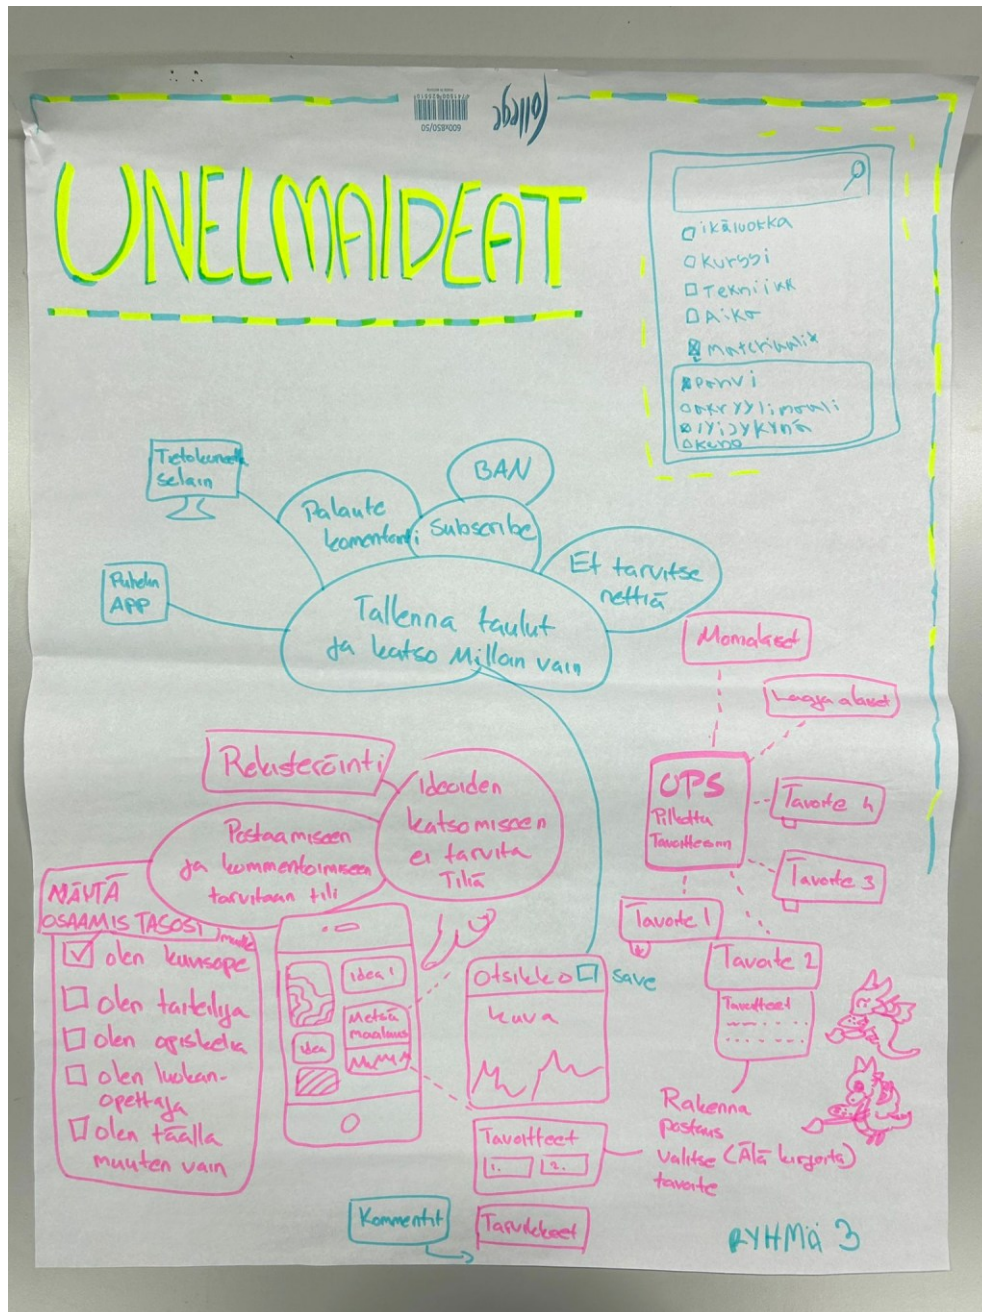 College
600x850/50
UNELMAIDEAT
ikäluokka
kurssi
Tekniikk
Aika
materiaalit
Pahvi
akryylimaali
lyijykynä
Tietokoneella
selain
Puhelin
APP
Palaute
komentointi
BAN
Subscribe
Et tarvitse
nettiä
Tallenna taulut
ja katso Milloin vain
Monialaiset
Laaja alaiset
OPS
Pilkottu
Tavoitteisiin
Tavoite 4
Tavoite 3
Tavoite 1
Tavoite 2
Tavoitteet
Rekisteröinti
Ideoiden
katsomiseen
ei tarvita
Tiliä
Postaamiseen
ja kommentoimiseen
tarvitaan tili
NÄYTÄ
OSAAMIS TASOSI
muille
olen kuvisope
olen taiteilija
olen opiskelia
olen luokan-
opettaja
olen täällä
muuten vain
idea!
Metsä
maalaus
idea
Otsikko
save
kuva
Tavoitteet
1. 2.
Tarvikkeet
Kommentit
Rakenna
postaus
valitse (Älä kirjoita)
tavoite
RYHMä 3